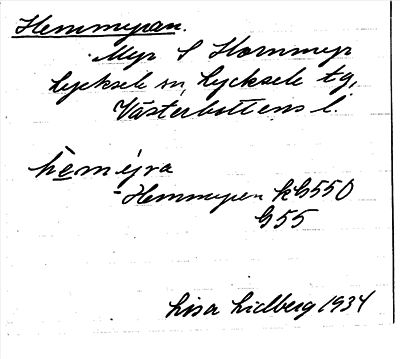 Hemmyran.
Myr S Hornmyr
Lycksele sn, Lycksele tg,
Västerbottens l.
hèmmy̌ra
Hemmyran kb550
G55
Lisa Lidberg 1934